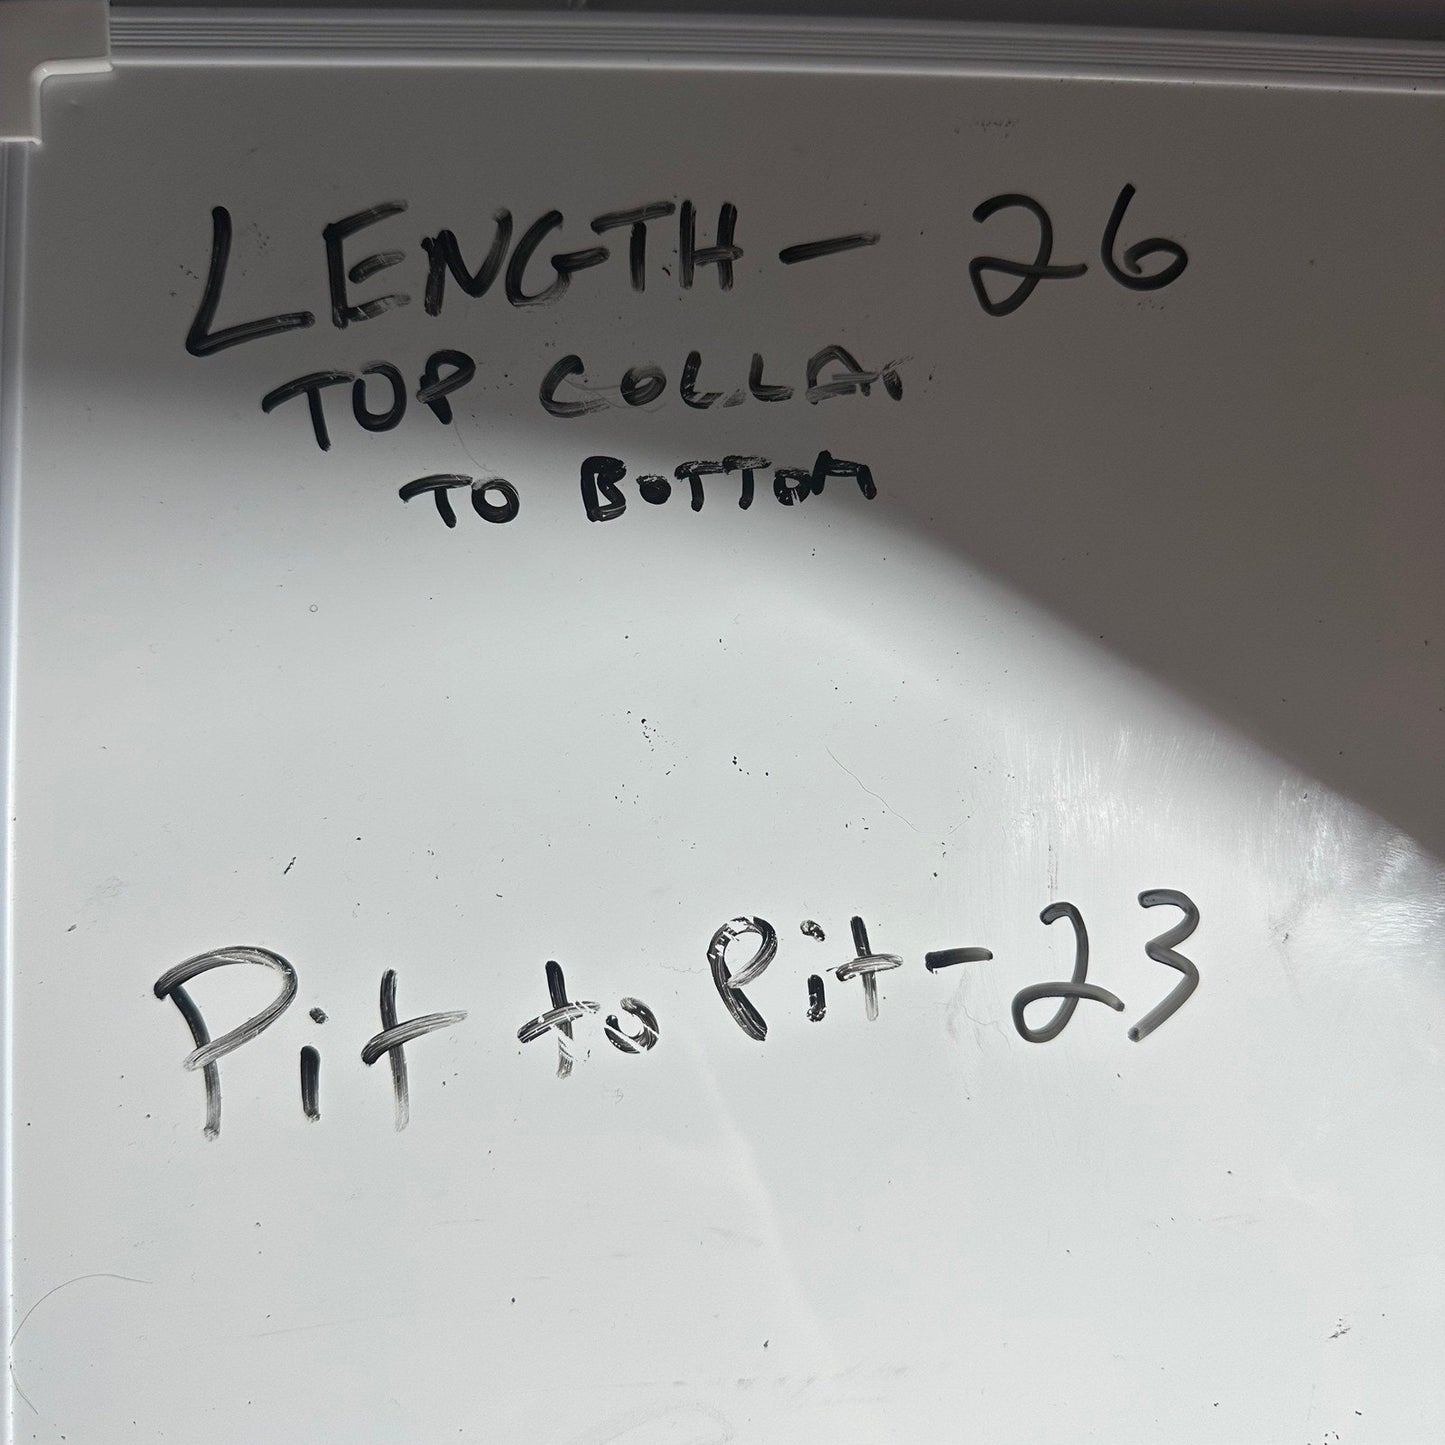 LENGTH - 26
TOP COLLAR
TO BOTTOM
Pit to Pit - 23